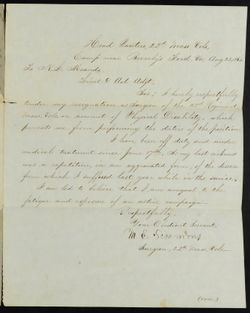 Head Quarters 22d Mass Vols.
Camp near Beverly Ford, Va. Aug 23, 186
To
Lieut & Act. Adjt.
Sir: I hereby respectfully
tender my resignation as Surgeon of the 22d Regiment
Mass. Vols. on account of Physical Disability, which
prevents me from performing the duties of the position
I have been off duty and under
medical treatment since June 17th. My last sickness
was a repetition, in an aggravated form, of the disease
from which I suffered last year while in the service.
I am led to believe that I am unequal to the
fatigue and exposure of an active campaign.
Respectfully,
Your Obedient Servant,
M. E.
Surgeon, 22d Mass. Vols.